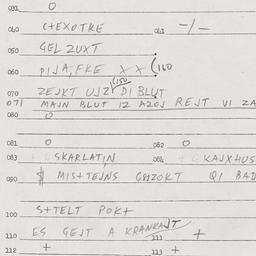 031 0
040 C+EXOTKE 041 -/-
050 GEL ZUXT
060 PIJA,FKE X X (160
070 ZEJKT UJZ (150) DI BLUT
071 MAJN BLUT IZ AZOJ REJT VI ZA
080 0
081 0 082 0
083 SKARLATIN 084 KAJXHUS
090 MIS+TEJNS GEZOKT QI BAD
100 S+TELT POK+
110 ES GEJT A KRANKAJT 111 +
112 + 113 +